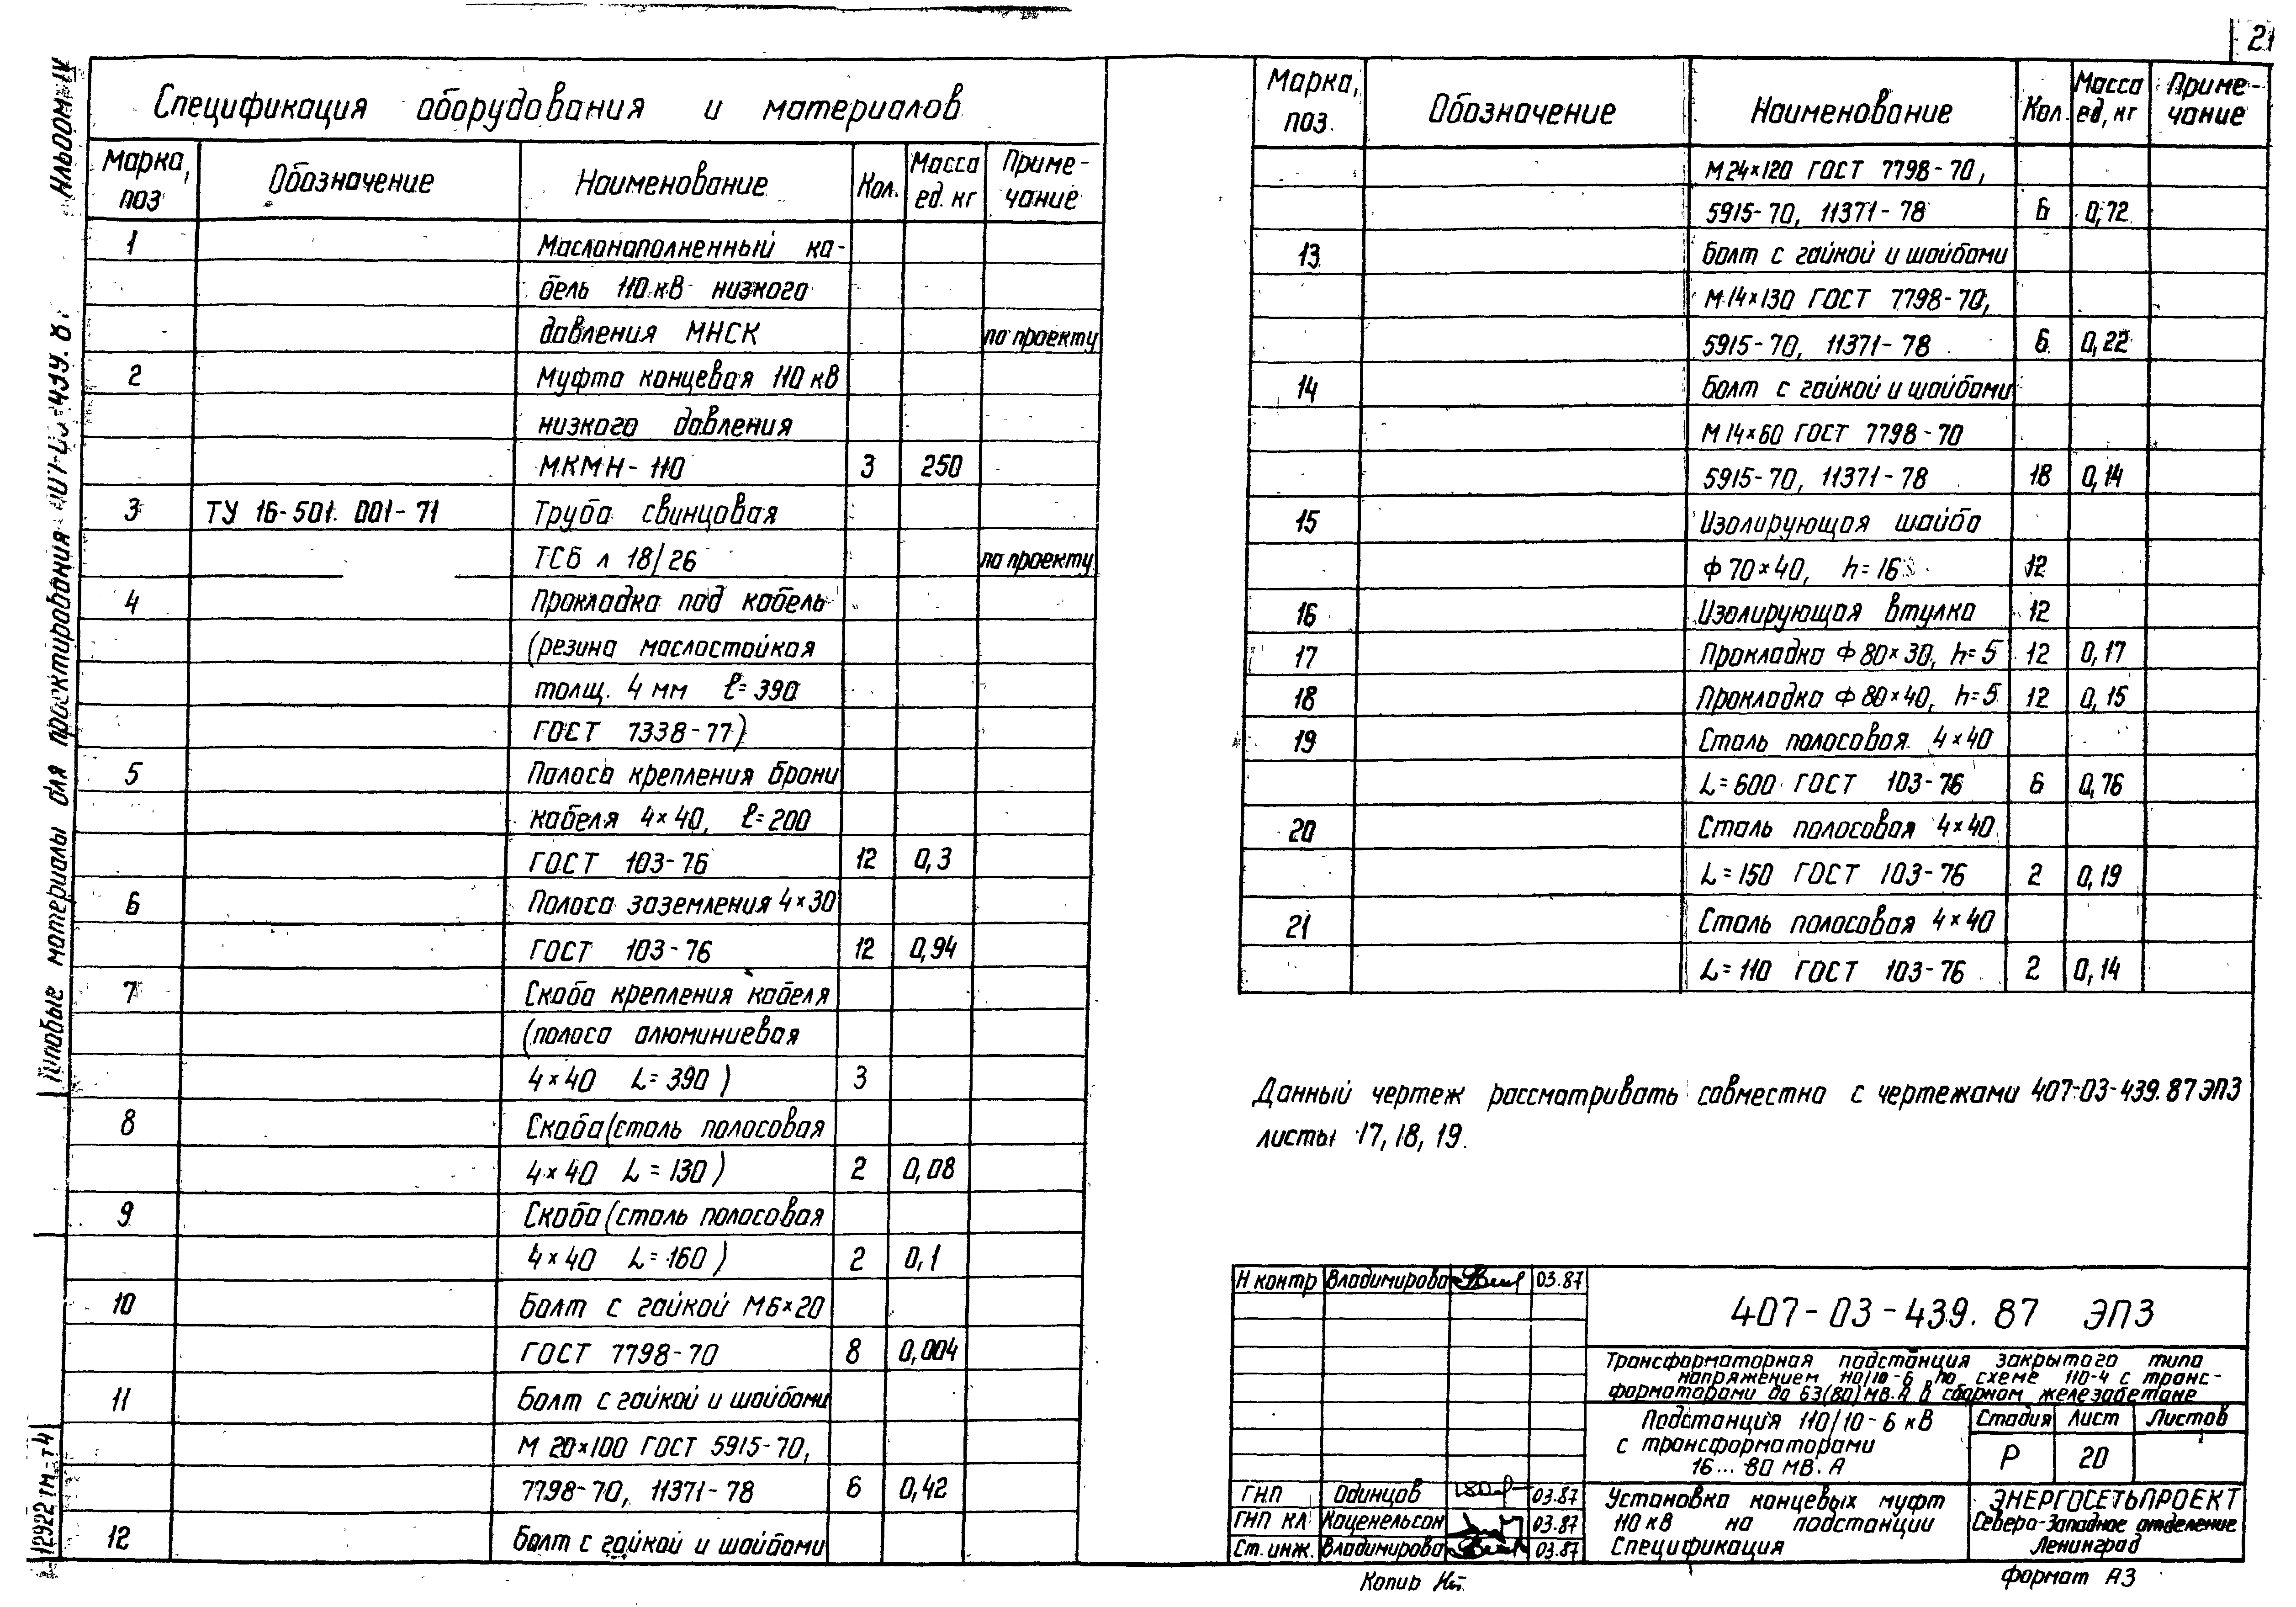 21
Альбом IV
Типовые материалы для проектирования
12922 тм-т4
Спецификация оборудования и материалов
Марка, поз Обозначение Наименование Кол. Масса ед. кг Приме-чание
1 Маслонаполненный ка-
бель 110 кВ низкого
давления МНСК по проекту
2 Муфта концевая 110 кВ
низкого давления
МКМН-110 3 250
3 ТУ 16-501.001-71 Труба свинцовая
ТСБ л 18/26 по проекту
4 Прокладка под кабель
(резина маслостойкая
толщ. 4 мм ℓ=390
ГОСТ 7338-77)
5 Полоса крепления брони
кабеля 4×40, ℓ=200
ГОСТ 103-76 12 0,3
6 Полоса заземления 4×30
ГОСТ 103-76 12 0,94
7 Скоба крепления кабеля
(полоса алюминиевая
4×40 L=390) 3
8 Скоба (сталь полосовая
4×40 L=130) 2 0,08
9 Скоба (сталь полосовая
4×40 L=160) 2 0,1
10 Болт с гайкой М6×20
ГОСТ 7798-70 8 0,004
11 Болт с гайкой и шайбами
М 20×100 ГОСТ 5915-70,
7798-70, 11371-78 6 0,42
12 Болт с гайкой и шайбами
Марка, поз. Обозначение Наименование Кол. Масса ед, кг Приме-чание
М24×120 ГОСТ 7798-70,
5915-70, 11371-78 6 0,72
13 Болт с гайкой и шайбами
М14×130 ГОСТ 7798-70,
5915-70, 11371-78 6 0,22
14 Болт с гайкой и шайбами
М14×60 ГОСТ 7798-70
5915-70, 11371-78 18 0,14
15 Изолирующая шайба
Ф70×40, h=16 12
16 Изолирующая втулка 12
17 Прокладка Ф80×30, h=5 12 0,17
18 Прокладка Ф80×40, h=5 12 0,15
19 Сталь полосовая 4×40
L=600 ГОСТ 103-76 6 0,76
20 Сталь полосовая 4×40
L=150 ГОСТ 103-76 2 0,19
21 Сталь полосовая 4×40
L=110 ГОСТ 103-76 2 0,14
Данный чертеж рассматривать совместно с чертежами 407-03-439.87 ЭПЗ
листы 17, 18, 19.
Н контр Владимирова 03.87
407-03-439.87 ЭПЗ
Трансформаторная подстанция закрытого типа
напряжением 110/10-6 по схеме 110-4 с транс-
форматорами до 63(80) МВ.А в сборном железобетоне
Подстанция 110/10-6 кВ
с трансформаторами
16...80 МВ.А
Стадия Лист Листов
Р 20
ГНП Одинцов 03.87
ГНП КЛ Каценельсон 03.87
Ст. инж. Владимирова 03.87
Установка концевых муфт
110 кВ на подстанции
Спецификация
ЭНЕРГОСЕТЬПРОЕКТ
Северо-Западное отделение
Ленинград
Копир
формат А3